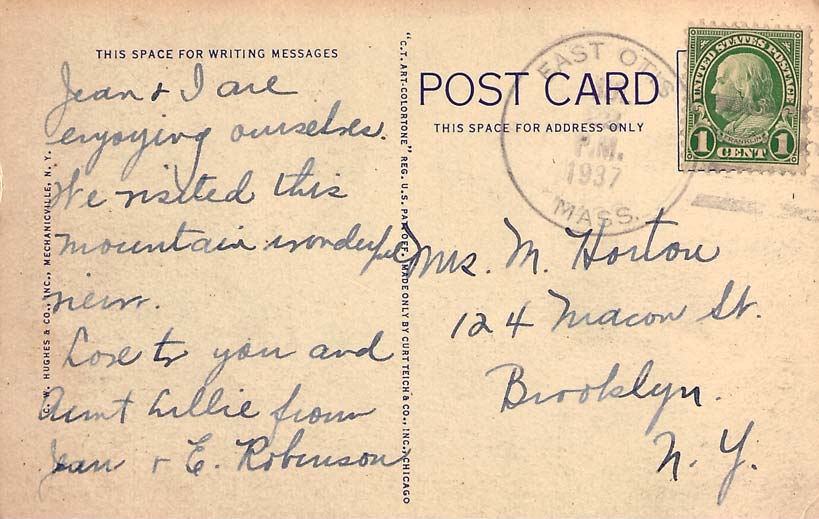 THIS SPACE FOR WRITING MESSAGES
Jean & I are
enjoying ourselves.
We visited this
mountain wonderful
view.
Love to you and
Aunt Lillie from
Jean & E. Robinson
C. W. HUGHES & CO., INC., MECHANICVILLE, N. Y.
"C.T. ART-COLORTONE" REG. U.S. PAT. OFF. MADE ONLY BY CURT TEICH & CO., INC., CHICAGO
POST CARD
THIS SPACE FOR ADDRESS ONLY
EAST OTIS
P.M.
1937
MASS.
UNITED STATES POSTAGE
FRANKLIN
1 CENT 1
Mrs. M. Horton
124 Macon St.
Brooklyn.
N. Y.